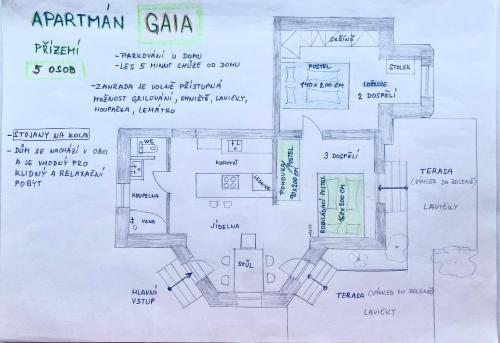 APARTMÁN GAIA
PŘÍZEMÍ
5 OSOB
- PARKOVÁNÍ U DOMU
- LES 5 MINUT CHŮZE OD DOMU
- ZAHRADA JE VOLNĚ PŘÍSTUPNÁ
MOŽNOST GRILOVÁNÍ, OHNIŠTĚ, LAVIČKY,
HOUPAČKA, LEHÁTKO
- STOJANY NA KOLA
- DŮM SE NACHÁZÍ V OBCI
A JE VHODNÝ PRO
KLIDNÝ A RELAXAČNÍ
POBYT
SKŘÍNĚ
POSTEL
140 x 200 CM
STOLEK
LOŽNICE
2 DOSPĚLÍ
WC
KOUPELNA
VANA
KUCHYŇ
LEDNICE
JÍDELNA
STŮL
POHOVKA/
POSTEL
90x200 CM
3 DOSPĚLÍ
ROZKLÁDACÍ POSTEL
160x200 CM
TERASA
(VÝHLED DO ZELENĚ)
LAVIČKY
HLAVNÍ
VSTUP
TERASA (VÝHLED DO ZELENĚ)
LAVIČKY